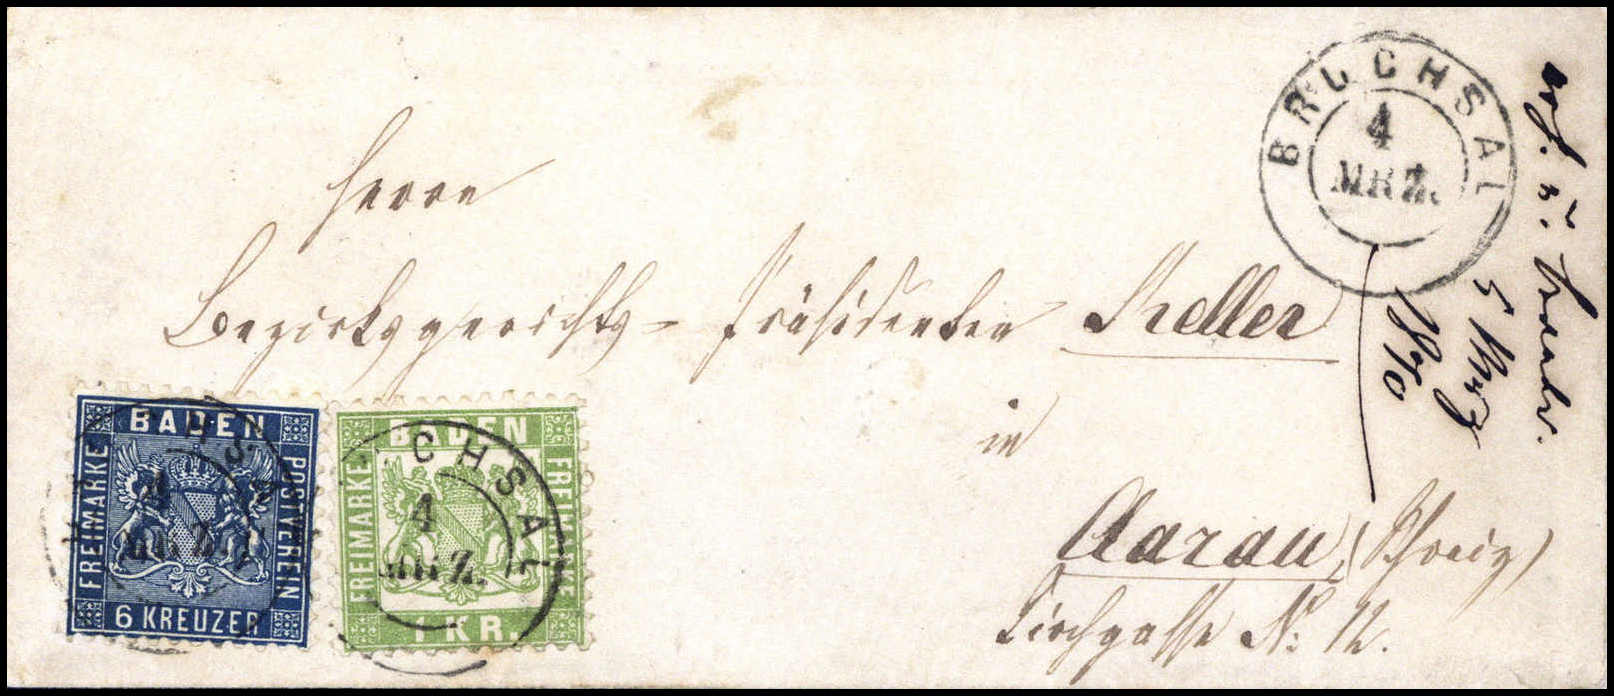 BRUCHSAL
4
MRZ.
Herrn
Bezirksgerichts-Präsidenten Keller
in
Aarau, (Schweiz)
Kirchgasse No. 12.
5 März
1870
BADEN
FREIMARKE
POSTVEREIN
6 KREUZER
4
MRZ.
BADEN
FREIMARKE
FREIMARKE
1 KR.
CHSAL
4
MRZ.